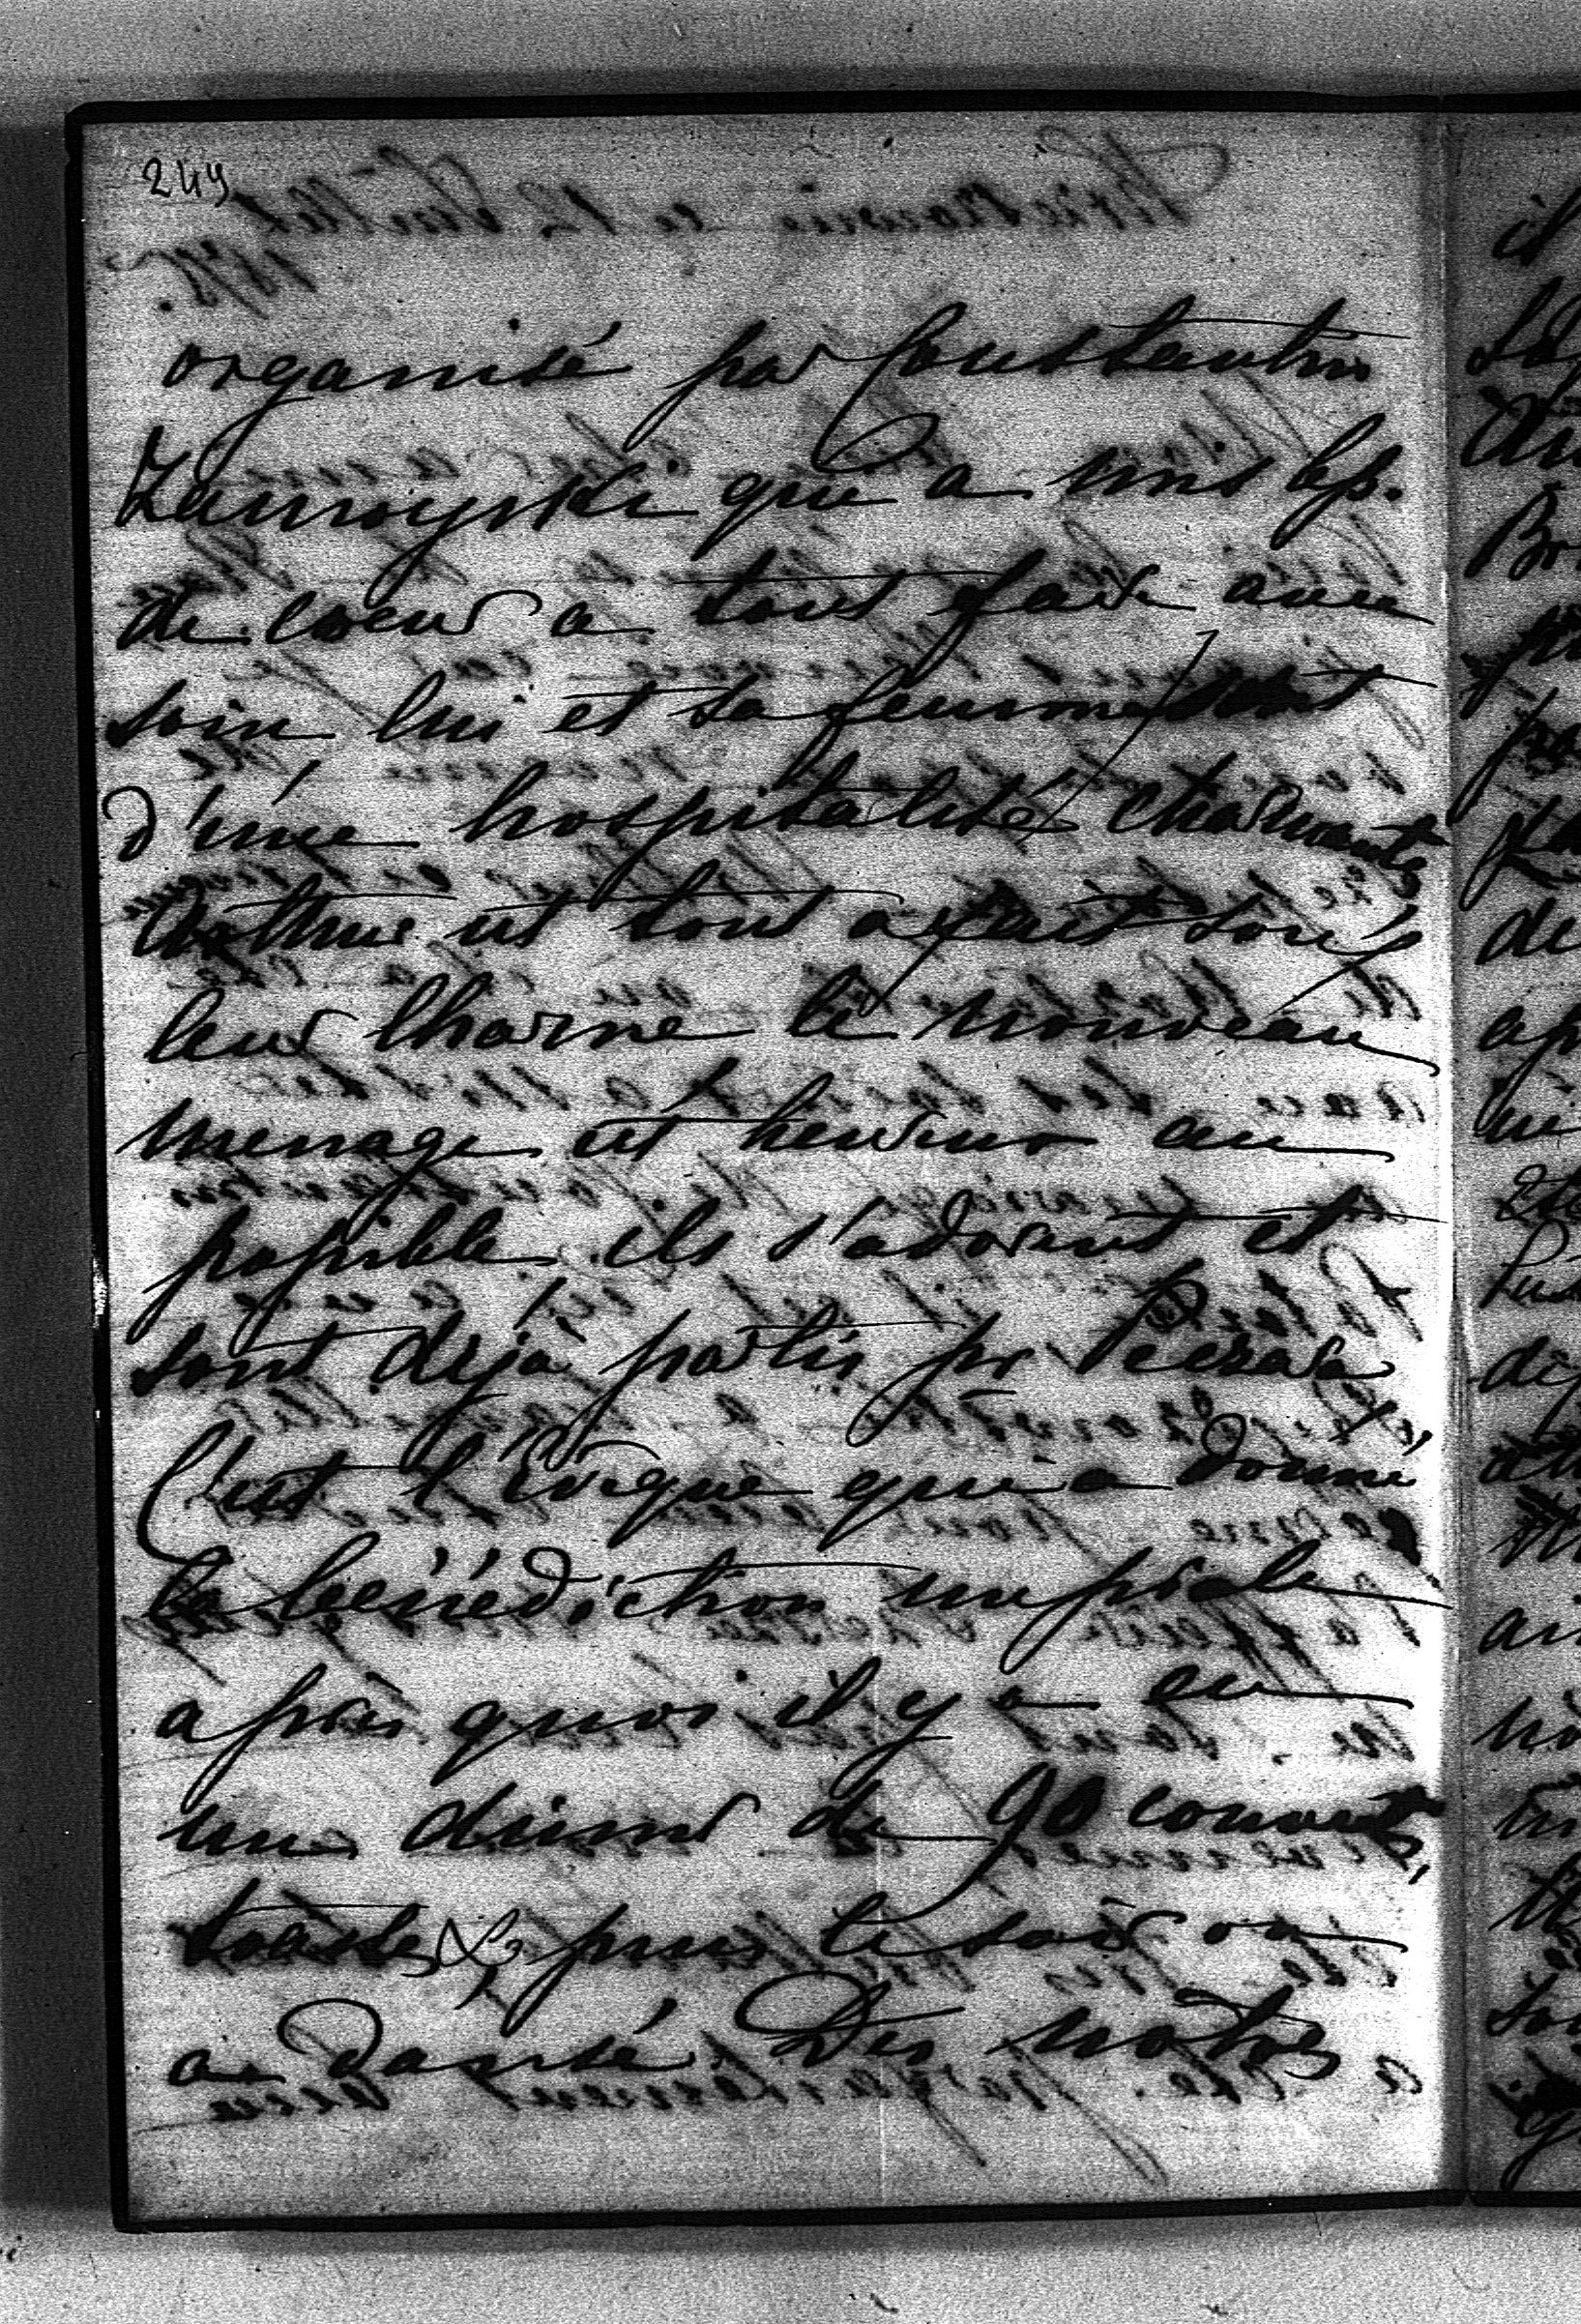 249
organisé par Constantin
Zamoyski qui a mis bp.
de coeur a tout faire avec
soin lui et sa femme sont
d'une hospitalité charmante
Arthur est tout a fait sous
leur charme le nouveau
menage est heureux au
possible ils s'adorent et
sont déja partis pr
C'est l'Evêque qui a donné
la bénédiction nuptiale
après quoi il y a eu
un diner de 90 couverts,
toastes & puis le soir on
a dansé Des notres